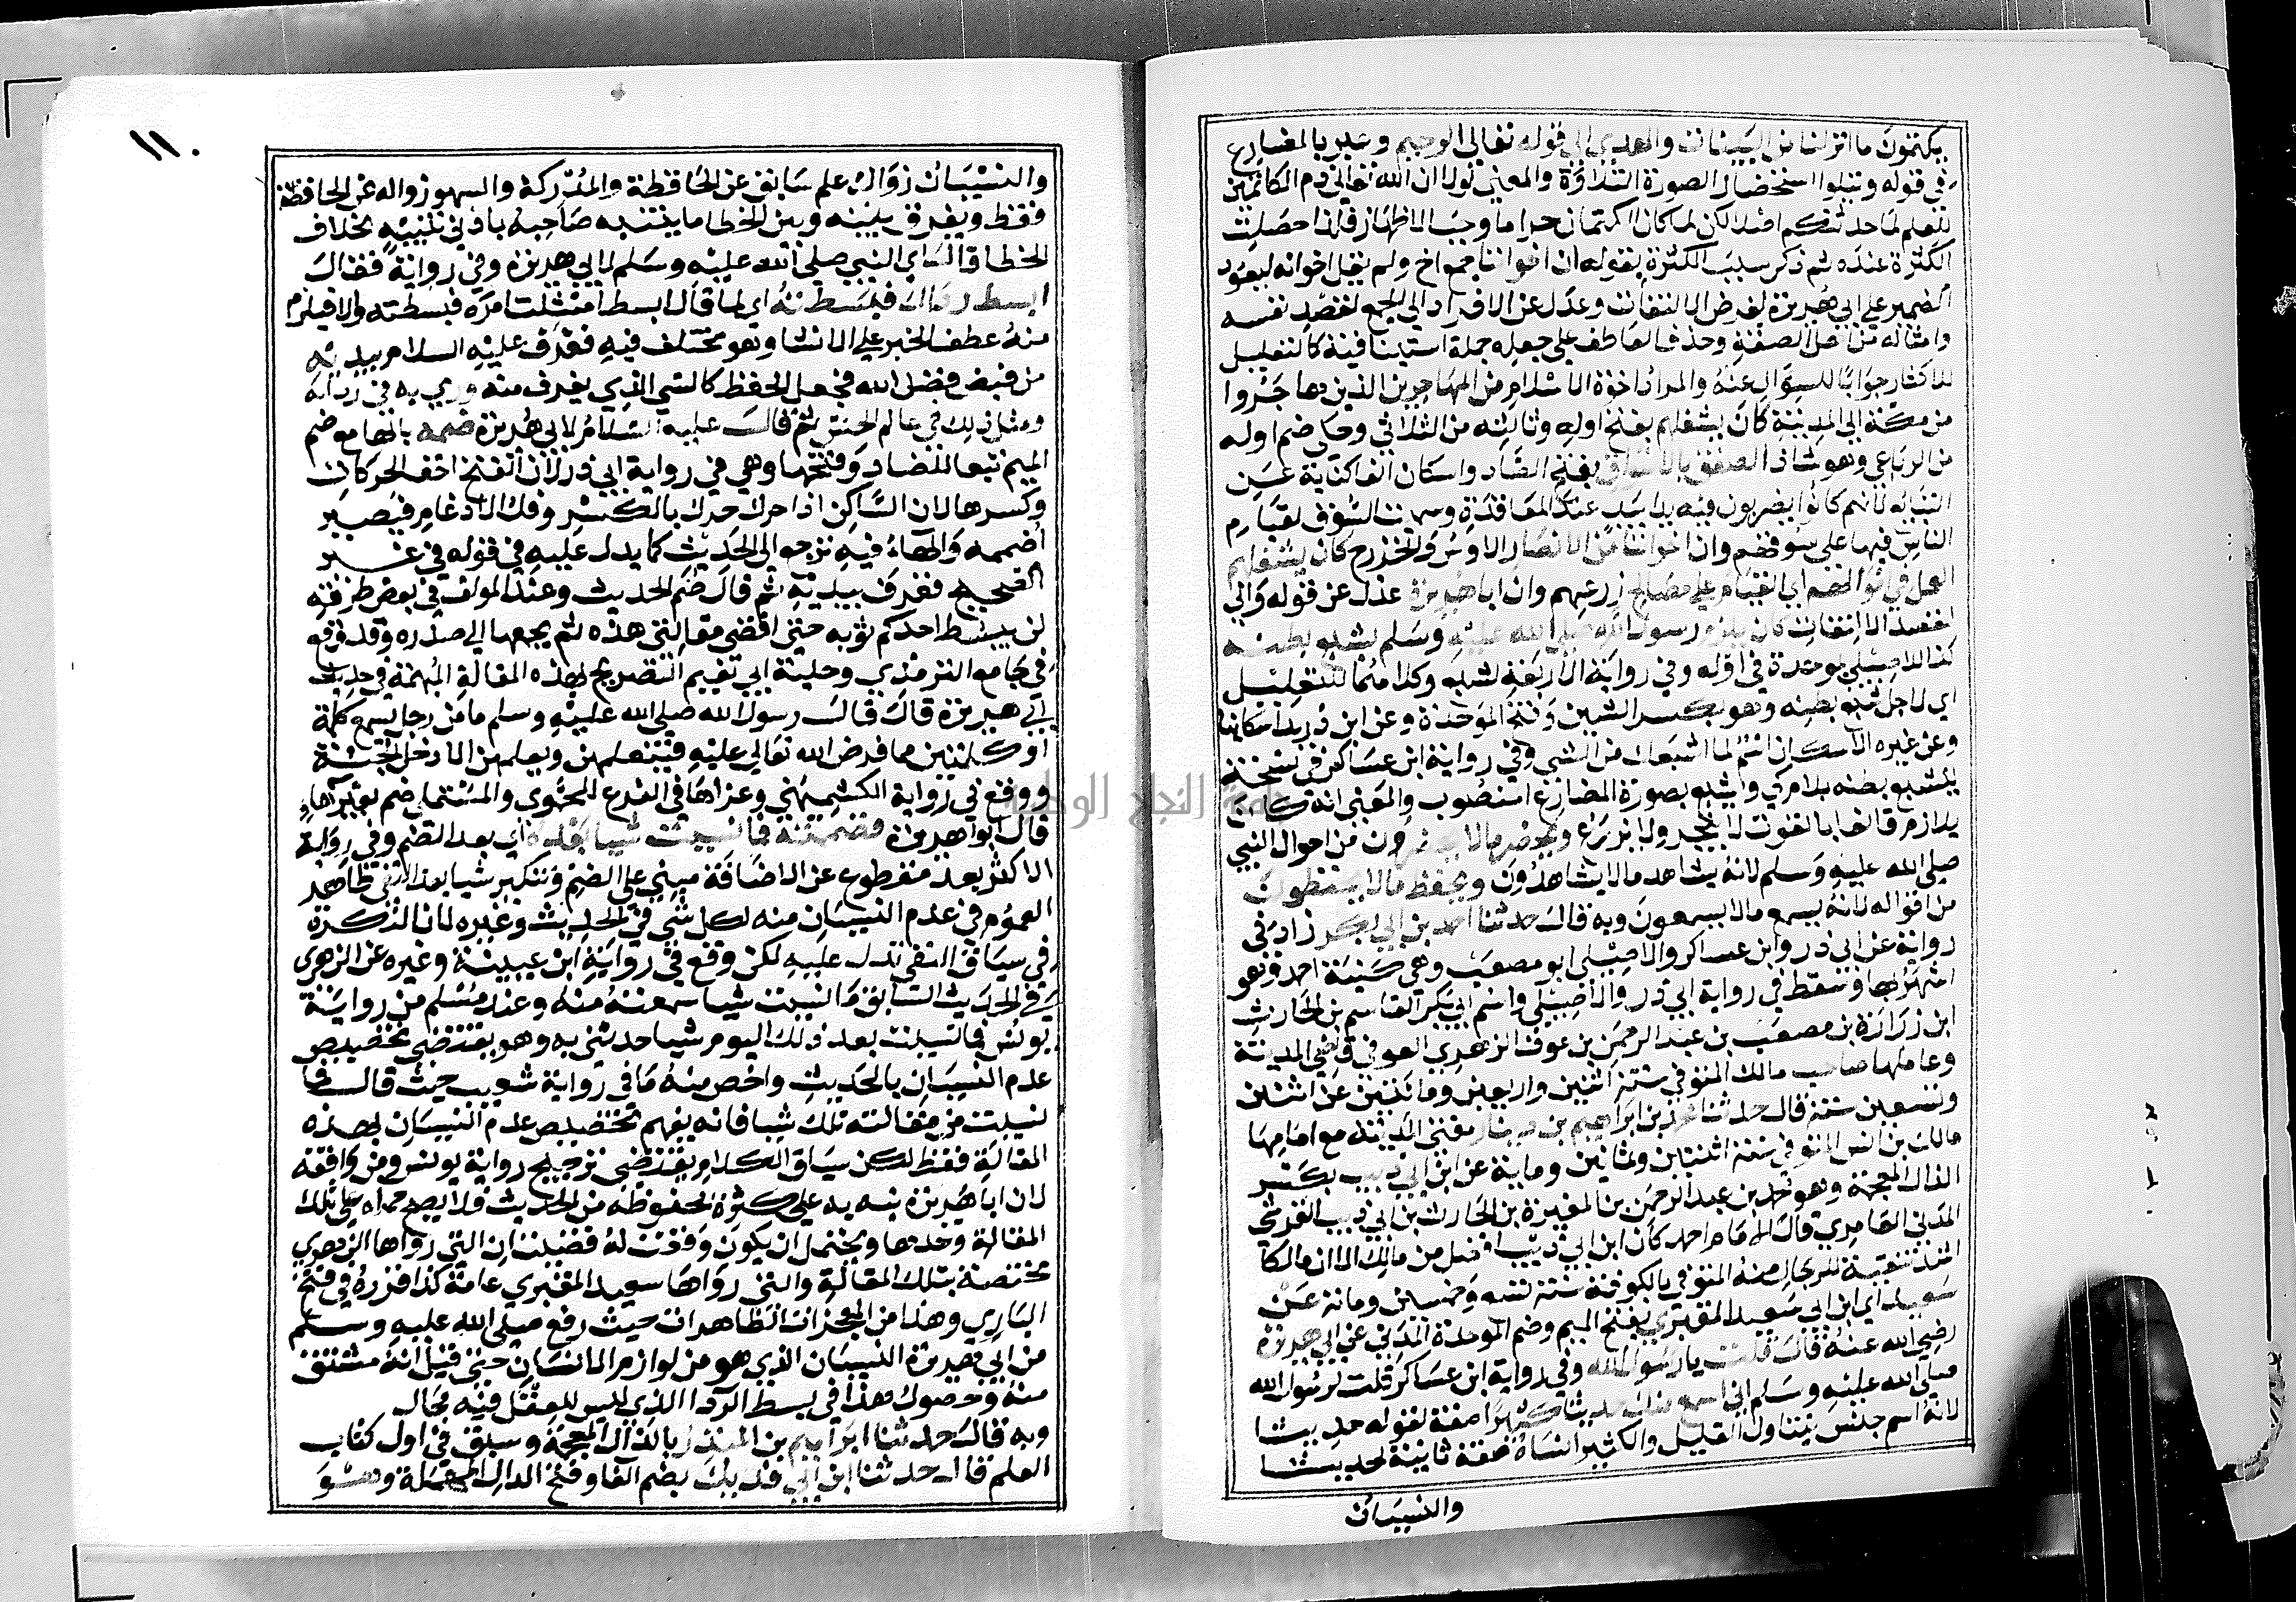 يكتمون ما انزلنا من البينات والهدي الى قوله تعالى الرحيم وعبر بالمضارع
في قوله ويتلوا استحضارا لصورة التلاوة والمعني لولا ان الله تعالى ذم الكاتمين
للعلم لما حدثتكم اصلا لكن لما كان الكتمان حراما وجب الاظهار فلهذا حصلت
الكثرة عنده ثم ذكر سبب الكثرة بقوله ان اخواننا جمع اخ ولم يقل اخوانه ليعود
الضمير علي ابي هريرة لغرض الالتفات وعدل عن الافراد الي الجمع لقصد نفسه
وامثاله من اهل الصفة وحذف العاطف علي جعله جملة استينافية كالتعليل
للاكثار جوابا للسؤال عنه والمراد اخوة الاسلام من المهاجرين الذين هاجروا
من مكة الي المدينة كان يشغلهم بفتح اوله وثالثه من الثلاثي وحكي ضم اوله
من الرباعي وهو شاذ الصفق بالاسواق بفتح الصاد واسكان الفا كناية عن
التبايع لانهم كانوا يضربون فيه يدا بيد عند المعاقدة وسميت السوق لقيام
الناس فيها علي سوقهم وان اخواننا من الانصار الاوس والخزرج كان يشغلهم
العمل في اموالهم اي القيام علي مصالح زرعهم وان ابا هريرة عدل عن قوله واني
لقصد الالتفات كان يلزم رسول الله صلى الله عليه وسلم بشبع بطنه
كذا للاصيلي بموحدة في اوله وفي رواية الاربعة لشبع وكلاهما للتعليل
اي لاجل شبع بطنه وهو بكسر الشين وفتح الموحدة وعن ابن دريد اسكانها
وعن غيره الاسكان اسم لما اشبعك من الشي وفي رواية ابن عساكر في نسخة
ليشبع بطنه بلام كي ويشبع بصورة المضارع المنصوب والمعني انه كان
يلازم قانعا بالقوت لا يتجر ولا يزرع ويحضر ما لا يحضرون من احوال النبي
صلى الله عليه وسلم لانه يشاهد ما لا يشاهدون ويحفظ ما لا يحفظون
من اقواله لانه يسمع ما لا يسمعون وبه قال حدثنا احمد بن ابي بكر زاد في
رواية عن ابي ذر وابن عساكر والاصيلي ابو مصعب وهي كنية احمد وهو
اشهر بها وسقط في رواية ابي ذر والاصيلي واسم ابي بكر القاسم بن الحارث
ابن زرارة بن مصعب بن عبد الرحمن بن عوف الزهري العوفي قاضي المدينة
وعاملها صاحب مالك المتوفي سنة اثنين واربعين ومائتين عن اثنين
وتسعين سنة قال حدثنا محمد بن ابراهيم بن دينار مفتي المدينة مع امامها
مالك بن انس المتوفي سنة اثنتين وثمانين وماية عن ابن ابي ذيب بكسر
الذال المعجمة وهو محمد بن عبد الرحمن بن المغيرة بن الحارث بن ابي ذيب القرشي
المدني العامري قال الامام احمد كان ابن ابي ذيب افضل من مالك الا ان مالكا
اشد تنقية للرجال منه المتوفي بالكوفة سنة تسع وخمسين ومائة عن
سعيد اي ابن ابي سعيد المقبري بفتح الميم وضم الموحدة المدني عن ابي هريرة
رضي الله عنه قال قلت يا رسول الله وفي رواية ابن عساكر قلت لرسول الله
صلى الله عليه وسلم اني اسمع منك حديثا كثيرا صفة لقوله حديثا
لانه اسم جنس يتناول القليل والكثير انساه صفة ثانية لحديثا
والنسيان
١١٠
والنسيان زوال علم سابق عن الحافظة والمدركة والسهو زواله عن الحافظة
فقط ويفرق بينه وبين الخطا ما يتنبه صاحبه بادني تنبيه بخلاف
الخطا قال اي النبي صلى الله عليه وسلم لابي هريرة وفي رواية فقال
ابسط رداك فبسطته اي لما قال ابسط امتثلت امره فبسطته والا فيلزم
منه عطف الخبر علي الانشا وهو مختلف فيه فغرف عليه السلام بيديه
من فيض فضل الله فجعل الحفظ كالشي الذي يغرف منه ورمي به في ردائه
ومثل ذلك في عالم الحس ثم قال عليه السلام لابي هريرة ضمه بالها مع ضم
الميم تبعا للضاد وفتحها وهي في رواية ابي ذر لان الفتح اخف الحركات
وكسرها لان الساكن اذا حرك حرك بالكسر وفك الادغام فيصير
اضممه والهاء فيه ترجع الي الحديث كما يدل عليه في قوله في غير
الصحيح فغرف بيديه ثم قال ضم الحديث وعند المولف في بعض طرفه
لن يبسط احدكم ثوبه حتي اقضي مقالتي هذه ثم يجمعها الي صدره وقد وقع
في جامع الترمذي وحلية ابي نعيم التصريح بهذه المقالة المبهمة في حديث
ابي هريرة قال قال رسول الله صلى الله عليه وسلم ما من رجل يسمع كلمة
او كلمتين مما فرض الله تعالى عليه فيتعلمهن ويعلمهن الا دخل الجنة
ووقع في رواية الكشميهني وعزاها في الفرع للحموي والمستملي ضم بغير هاء
قال ابو هريرة فضممته فما نسيت شيا بعده اي بعد الضم وفي رواية
الاكثر بعد مقطوع عن الاضافة مبني علي الضم وتنكير شيا بعد النفي ظاهر
العموم في عدم النسيان منه لكل شي في الحديث وغيره لان النكرة
في سياق النفي تدل عليه لكن وقع في رواية ابن عيينة وغيره عن الزهري
في الحديث السابق ما نسيت شيا سمعته منه وعند مسلم من رواية
يونس فما نسيت بعد ذلك اليوم شيا حدثني به وهو يقتضي تخصيص
عدم النسيان بالحديث واخص منه ما في رواية شعيب حيث قال فما
نسيت من مقالته تلك شيا فانه يفهم تخصيص عدم النسيان بهذه
المقالة فقط لكن سياق الكلام يقتضي ترجيح رواية يونس ومن وافقه
لان ابا هريرة نبه به علي كثرة محفوظه من الحديث فلا يصح حمله علي تلك
المقالة وحدها ويحتمل ان يكون وقعت له قضيتان التي رواها الزهري
مختصة بتلك المقالة والتي رواها سعيد المقبري عامة كذا قرره في فتح
الباري وهذا من المعجزات الظاهرات حيث رفع صلى الله عليه وسلم
من ابي هريرة النسيان الذي هو من لوازم الانسان حتي قيل انه مشتق
منه وحصول هذا في بسط الردا الذي ليس للعقل فيه مجال
وبه قال حدثنا ابراهيم بن المنذر بالذال المعجمة وسبق في اول كتاب
العلم قال حدثنا ابن ابي فديك بضم الفا وفتح الدال المهملة وهو